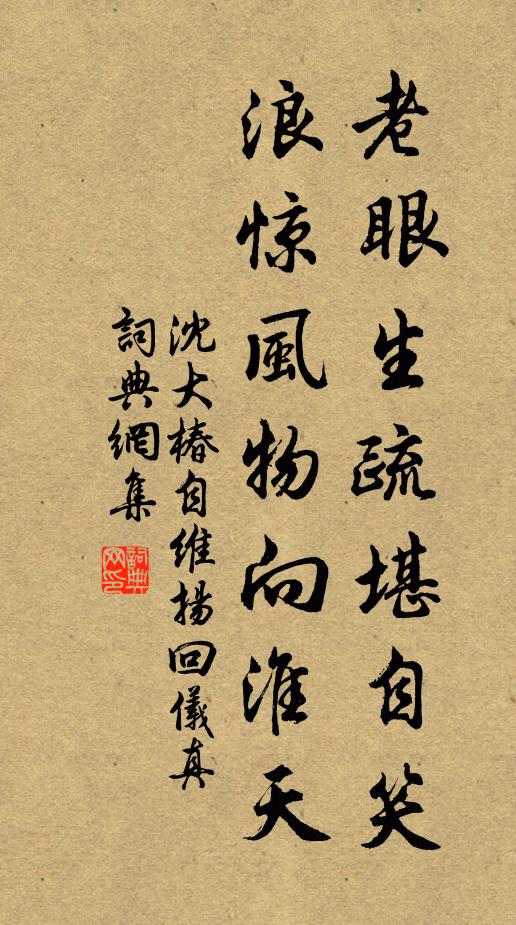 老眼生疏堪自笑
浪惊風物向淮天
沈大椿自維揚回儀真
詞典網集
詞典网印